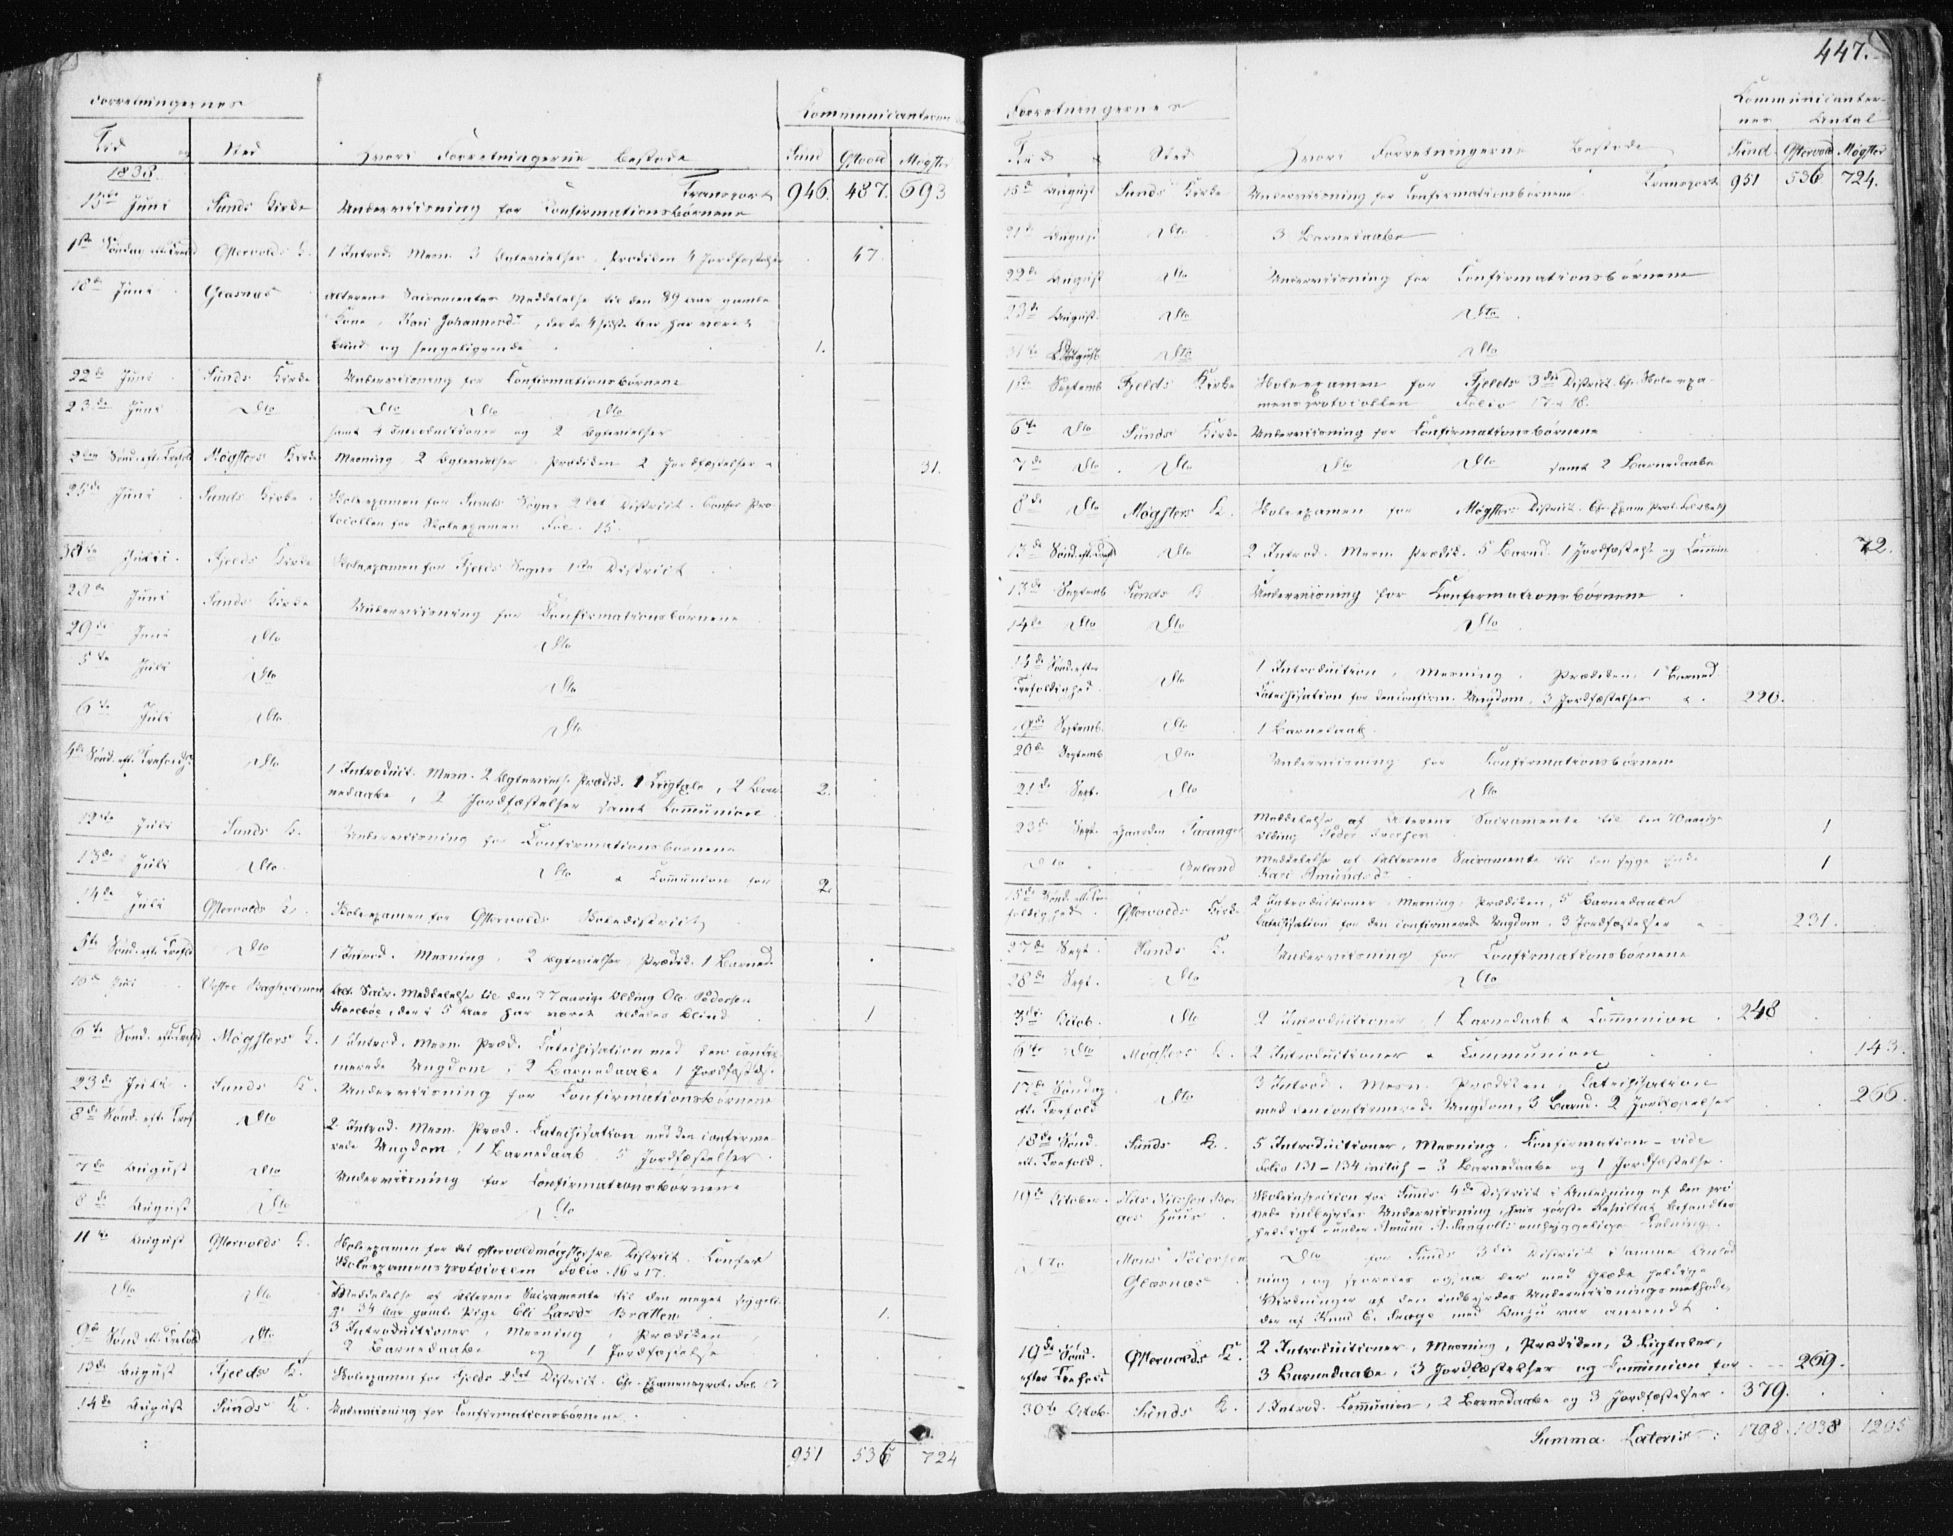 Forretningernes
Kommunicanternes
Tid og Sted Hvori Forretningerne bestode Sund Østvold Møgster
1838.
Transport 946. 487. 693
15de Juni Sunds Kirke Underviisning for Confirmationsbørnene
1ste Søndag eft. Trefold Østervolds K. 1 Introd. Mesn. 3 Ægtevielser, Prædiken 4 Jordfæstelser 47.
18de Juni Glesnæs Alterens Sacramentes Meddelelse til den 89 aar gamle
Kone, Kari Johannesdr, der de 4 sidste Aar har været
blind og sengeliggende 1.
22de Juni Sunds Kirke Underviisning for Confirmationsbørnene
23de Juni Dto Dto Dto Dto
samt 4 Introductioner og 2 Ægtevielser
2den Sønd. eft. Trefold Møgsters Kirke Mesning 2 Ægtevielser Prædiken 2 Jordfæstelser 31.
25de Juni Sunds Kirke Skoleexamen for Sunds Sogns 2det District. Confer Pro-
tocollen for Skoleexamen Fol. 15.
Juni Fjelds Kirke Skoleexamen for Fjelds Sogns 1ste District
28de Juni Sunds Kirke Underviisning for Confirmationsbørnene
29de Juni Dto Dto
5te Juli Dto Dto
6te Juli Dto Dto
4de Sønd. eft. Trefoldigh. Dto 1 Introduct. Mesn. 2 Ægteviels. Prædik. 1 Liigtale, 2 Bar-
nedaabe, 2 Jordfæstelser samt Communion 2.
12te Juli Sunds K. Underviisning for Confirmationsbørnene
13de Juli Dto Dto & Communion for 2.
14de Juli Østervolds K. Skoleexamen for Østervolds Skoledistrict
5te Sønd. eft. Trefold Dto 1 Introd. Mesning, 2 Ægtevielser Prædik. 1 Barned.
Juli Vestre Bagholmen Alt. Sacr. Meddelelse til den 77 aarige Olding Ole Pedersen
, der i 5 Aar har været aldeles blind 1
6te Sønd. eft. Trefold Møgsters K. 1 Introd. Mesn. Præd. Catechisation med den confir-
merede Ungdom, 2 Barnedaabe 1 Jordfæstels.
23de Juli Sunds K. Underviisning for Confirmationsbørnene
8de Sønd. eft. Tref. Dto 2 Introd. Mesn. Præd. Catechisation med den confirme-
rede Ungdom, 1 Barnedaab 5 Jordfæstelser
7de August Dto Underviisning for Confirmationsbørnene
8de August Dto Dto
11te August Østervolds K. Skoleexamen for det østervoldmøgsterske District. Confer
Skoleexamensprotocollen Folio 16 & 17.
Dto Dto Meddelelse af Alterens Sacramente til den meget sygeli-
ge 34 Aar gamle Pige Eli Larsdr Bratten 1.
9de Sønd. eft. Trefold Dto 3 Introductioner, Mesning, Prædiken,
2 Barnedaabe og 1 Jordfæstelse
13de August Fjelds K. Skoleexamen for Fjelds 2det District. Cfr. Examensprot. Fol. 17
14de August Sunds K. Underviisning for Confirmationsbørnene.
951 536 724

447.
Forretningernes
Kommunicanter-
nes Antal
Tid & Sted Hvori Forretningerne bestode Sund Østervold Møgster
Transport 951 536 724.
15de August Sunds Kirke Underviisning for Confirmationsbørnene
21de August Dto 3 Barnedaabe
22de August Dto Underviisning for Confirmationsbørnene
23de August. Dto Dto.
31te August Dto Dto
1ste Septemb Fjelds Kirke Skoleexamen for Fjelds 3die District. Cfr. Skoleexa-
mensprotocollen Folio 17 & 18.
6te Dto Sunds Kirke Underviisning for Confirmationsbørnene
7de Dto. Dto Dto Dto samt 2 Barnedaabe
8de Dto Møgsters K. Skoleexamen for Møgsters District. Cfr. Exam. Prot.
13de Sønd. eft. Tref Dto 2 Introd. Mesn. Prædik. 5 Barned. 1 Jordfæstelse og Comm. 72.
13de Septemb Sunds K Underviisning for Confirmationsbørnene.
14de Dto Dto Dto.
14de Sønd. efter
Trefoldighed. Dto 1 Introduction, Mesning, Prædiken, 1 Barned.
Catechisation for den confirm. Ungdom, 3 Jordfæstelser & 220.
19de Septemb. Dto 1 Barnedaab.
20de Septemb Dto Underviisning for Confirmationsbørnene
21de Sept. Dto Dto
23de Sept. Gaarden Tarange Meddelelse af Alterens Sacramente til den 70 aarige
Olding Peder Iversen 1
Dto Meddelelse af Alterens Sacramente til den syge Enke
Kari Amundsdr. 1
15de Sønd. eft. Tre-
foldighed. Østervolds Kirke 2 Introductioner, Mesning, Prædiken, 5 Barnedaabe
Catechisation for den confirmerede Ungdom. 3 Jordfæstelser & 231.
27de Sept. Sunds K. Underviisning for Confirmationsbørnene
28de Sept. Dto Dto
3die Octob. Dto 2 Introductioner, 1 Barnedaab & Communion. 248
6te Dto Møgsters K. 2 Introductioner & Communion 143.
17de Søndag
eft. Trefold Dto 3 Introd. Mesn. Prædiken, Catechisation
med den confirmerede Ungdom, 3 Barned. 2 Jordfæstelser 266.
18de Sønd.
eft. Trefold. Sunds K. 5 Introductioner, Mesning, Confirmation – vide
Folio 131–134 – 3 Barnedaabe og 1 Jordfæstelse.
19de October. Nils Nilssen
Huus. Skoleinspection for Sunds 4de District i Anledning af den
indbyrdes Underviisning, hvis første Resultat befandtes
heldigt under omhyggelige Ledning.
Dto Mons Pedersen
Glæsnæs Dto for Sunds 3die District i samme Anled-
ning, og sporedes ogsaa der med Glæde heldige
Virkninger af den indbyrdes Underviisningsmethode,
der af Knud med var anvendt.
19de Sønd.
efter Trefold Østervolds K. 2 Introductioner, Mesning, Prædiken, 3 Ligtaler,
3 Barnedaabe, 3 Jordfæstelser og Communion for 269.
30te Octob. Sunds K. 1 Introd. Communion, 2 Barnedaabe og 3 Jordfæstelser. 379.
Summa Lateris: 1798. 1038 1205